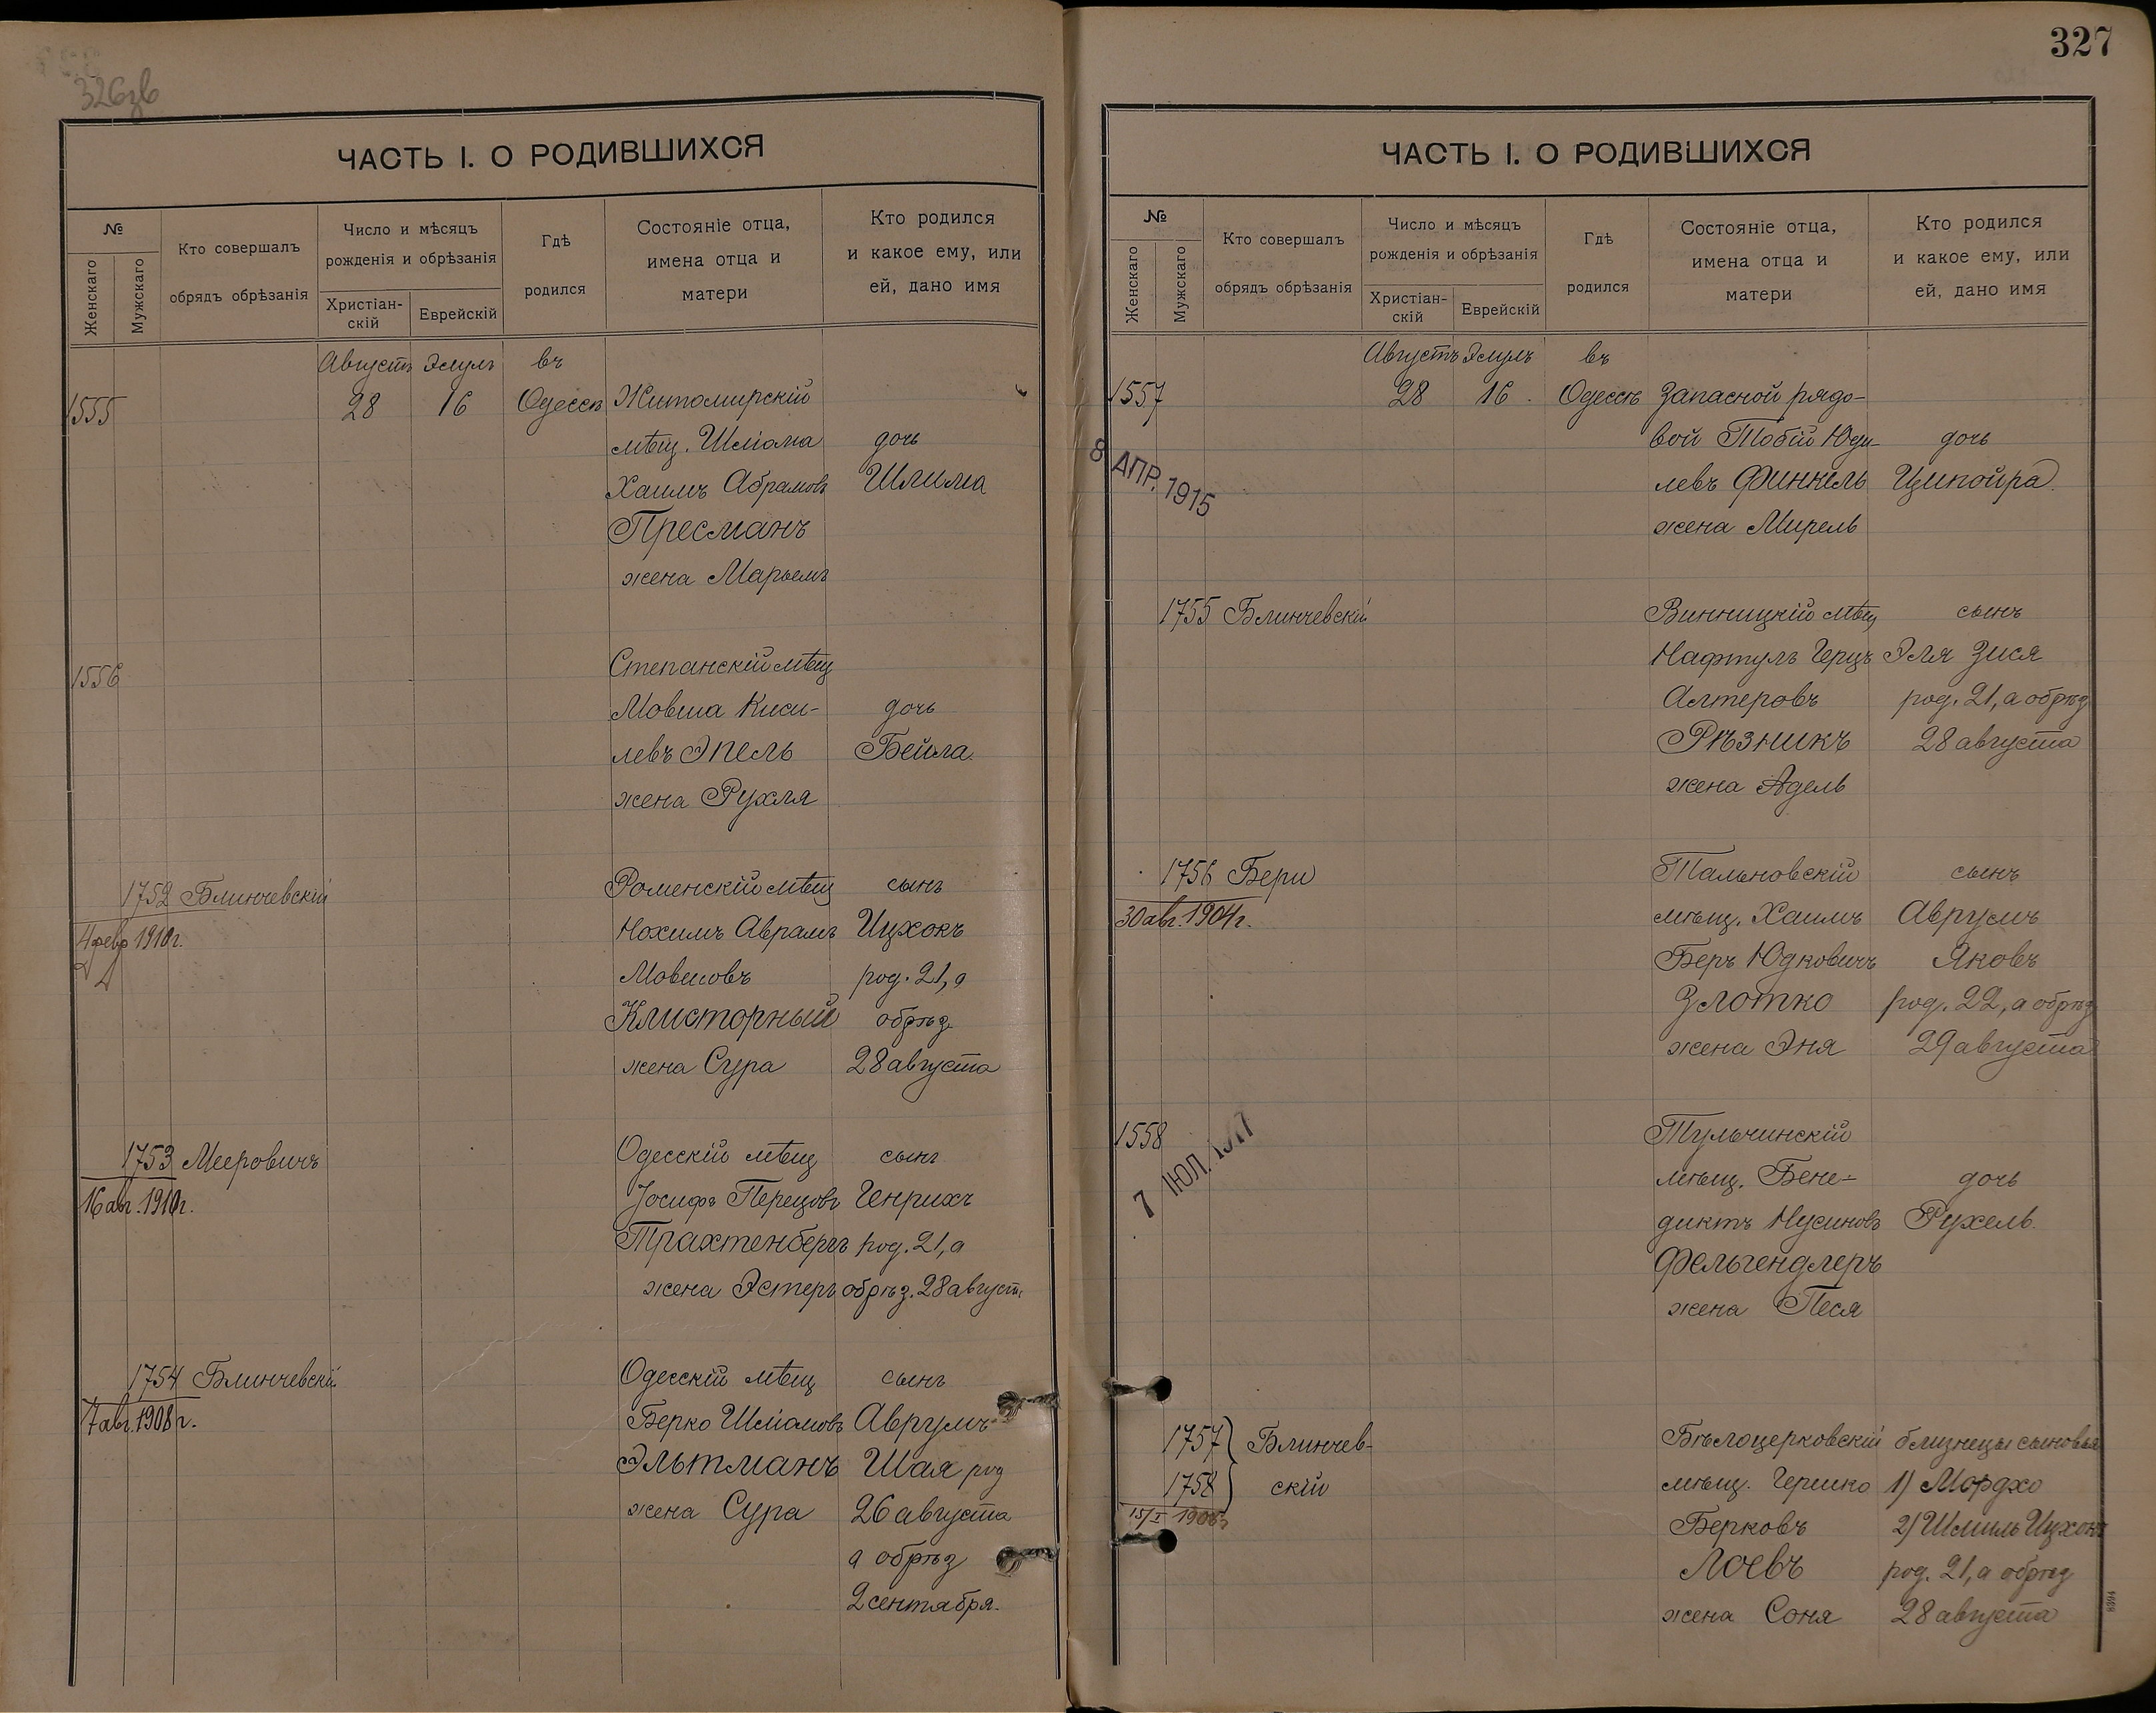 326зв
ЧАСТЬ I. О РОДИВШИХСЯ
№
Женскаго
Мужскаго
Кто совершалъ
обрядъ обрѣзанія
Число и мѣсяцъ
рожденія и обрѣзанія
Христіан-
скій
Еврейскій
Гдѣ
родился
Состояніе отца,
имена отца и
матери
Кто родился
и какое ему, или
ей, дано имя
Августъ Элулъ въ
1555 28 16 Одессѣ Житомирскій
мѣщ. Шліома дочь
Хаимъ Абрамовъ Шлима
Пресманъ
жена Марьемъ
1556 Степанскій мѣщ
Мовша Киси- дочь
левъ Эпель Бейла
жена Рухля
1752 Блинчевскій Роменскій мѣщ сынъ
4 февр 1910 г. Нохимъ Аврамъ Ицхокъ
Мовшовъ род. 21, а
Клисторный обрѣз
жена Сура 28 августа
1753 Мееровичъ Одесскій мѣщ сынъ
16 авг. 1910 г. Іосифъ Перецовъ Генрихъ
Трахтенбергъ род. 21, а
жена Эстеръ обрѣз. 28 август
1754 Блинчевскій Одесскій мѣщ сынъ
7 авг. 1908 г. Берко Шліомовъ Аврумъ
Эльтманъ Шая род
жена Сура 26 августа
а обрѣз
2 сентября.
327
ЧАСТЬ I. О РОДИВШИХСЯ
№
Женскаго
Мужскаго
Кто совершалъ
обрядъ обрѣзанія
Число и мѣсяцъ
рожденія и обрѣзанія
Христіан-
скій
Еврейскій
Гдѣ
родился
Состояніе отца,
имена отца и
матери
Кто родился
и какое ему, или
ей, дано имя
Августъ Элулъ въ
1557 28 16 Одессѣ Запасной рядо-
вой Тобій Юди- дочь
8 АПР. 1915
левъ Финкель Ципойра
жена Мирель
1755 Блинчевскій Винницкій мѣщ сынъ
Нафтулъ Герцъ Эля Зися
Алтеровъ род. 21, а обрѣз
Рѣзникъ 28 августа
жена Адель
1756 Бери Тальновскій сынъ
30 авг. 1904 г. мѣщ. Хаимъ Аврумъ
Беръ Юдковичъ Яковъ
Злотко род. 22, а обрѣз
жена Эня 29 августа
1558 Тульчинскій
7 ІЮЛ. 1917
мѣщ. Бене- дочь
диктъ Нусиновъ Рухель
Фельгендлеръ
жена Песя
1757 Блинчев- Бѣлоцерковскій близнецы сыновья
1758 скій мѣщ. Гершко 1) Мордхо
15/I 1906 Берковъ 2) Шмиль Ицхокъ
Лоевъ род. 21, а обрѣз
жена Соня 28 августа